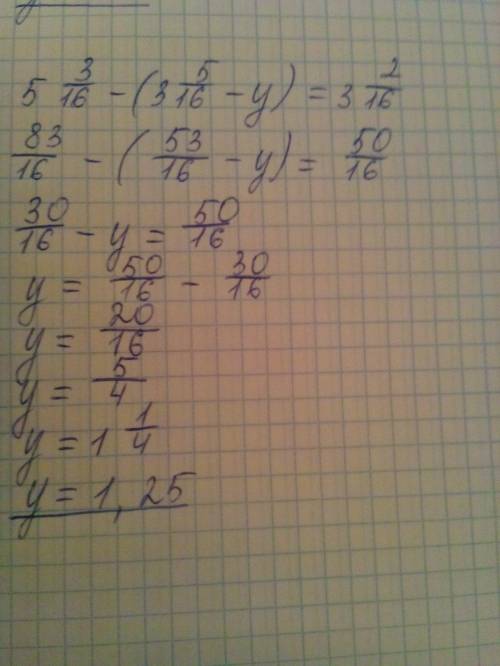 5 3/16 - (3 5/16 - y) = 3 2/16
83/16 - (53/16 - y) = 50/16
30/16 - y = 50/16
y = 50/16 - 30/16
y = 20/16
y = 5/4
y = 1 1/4
y = 1,25